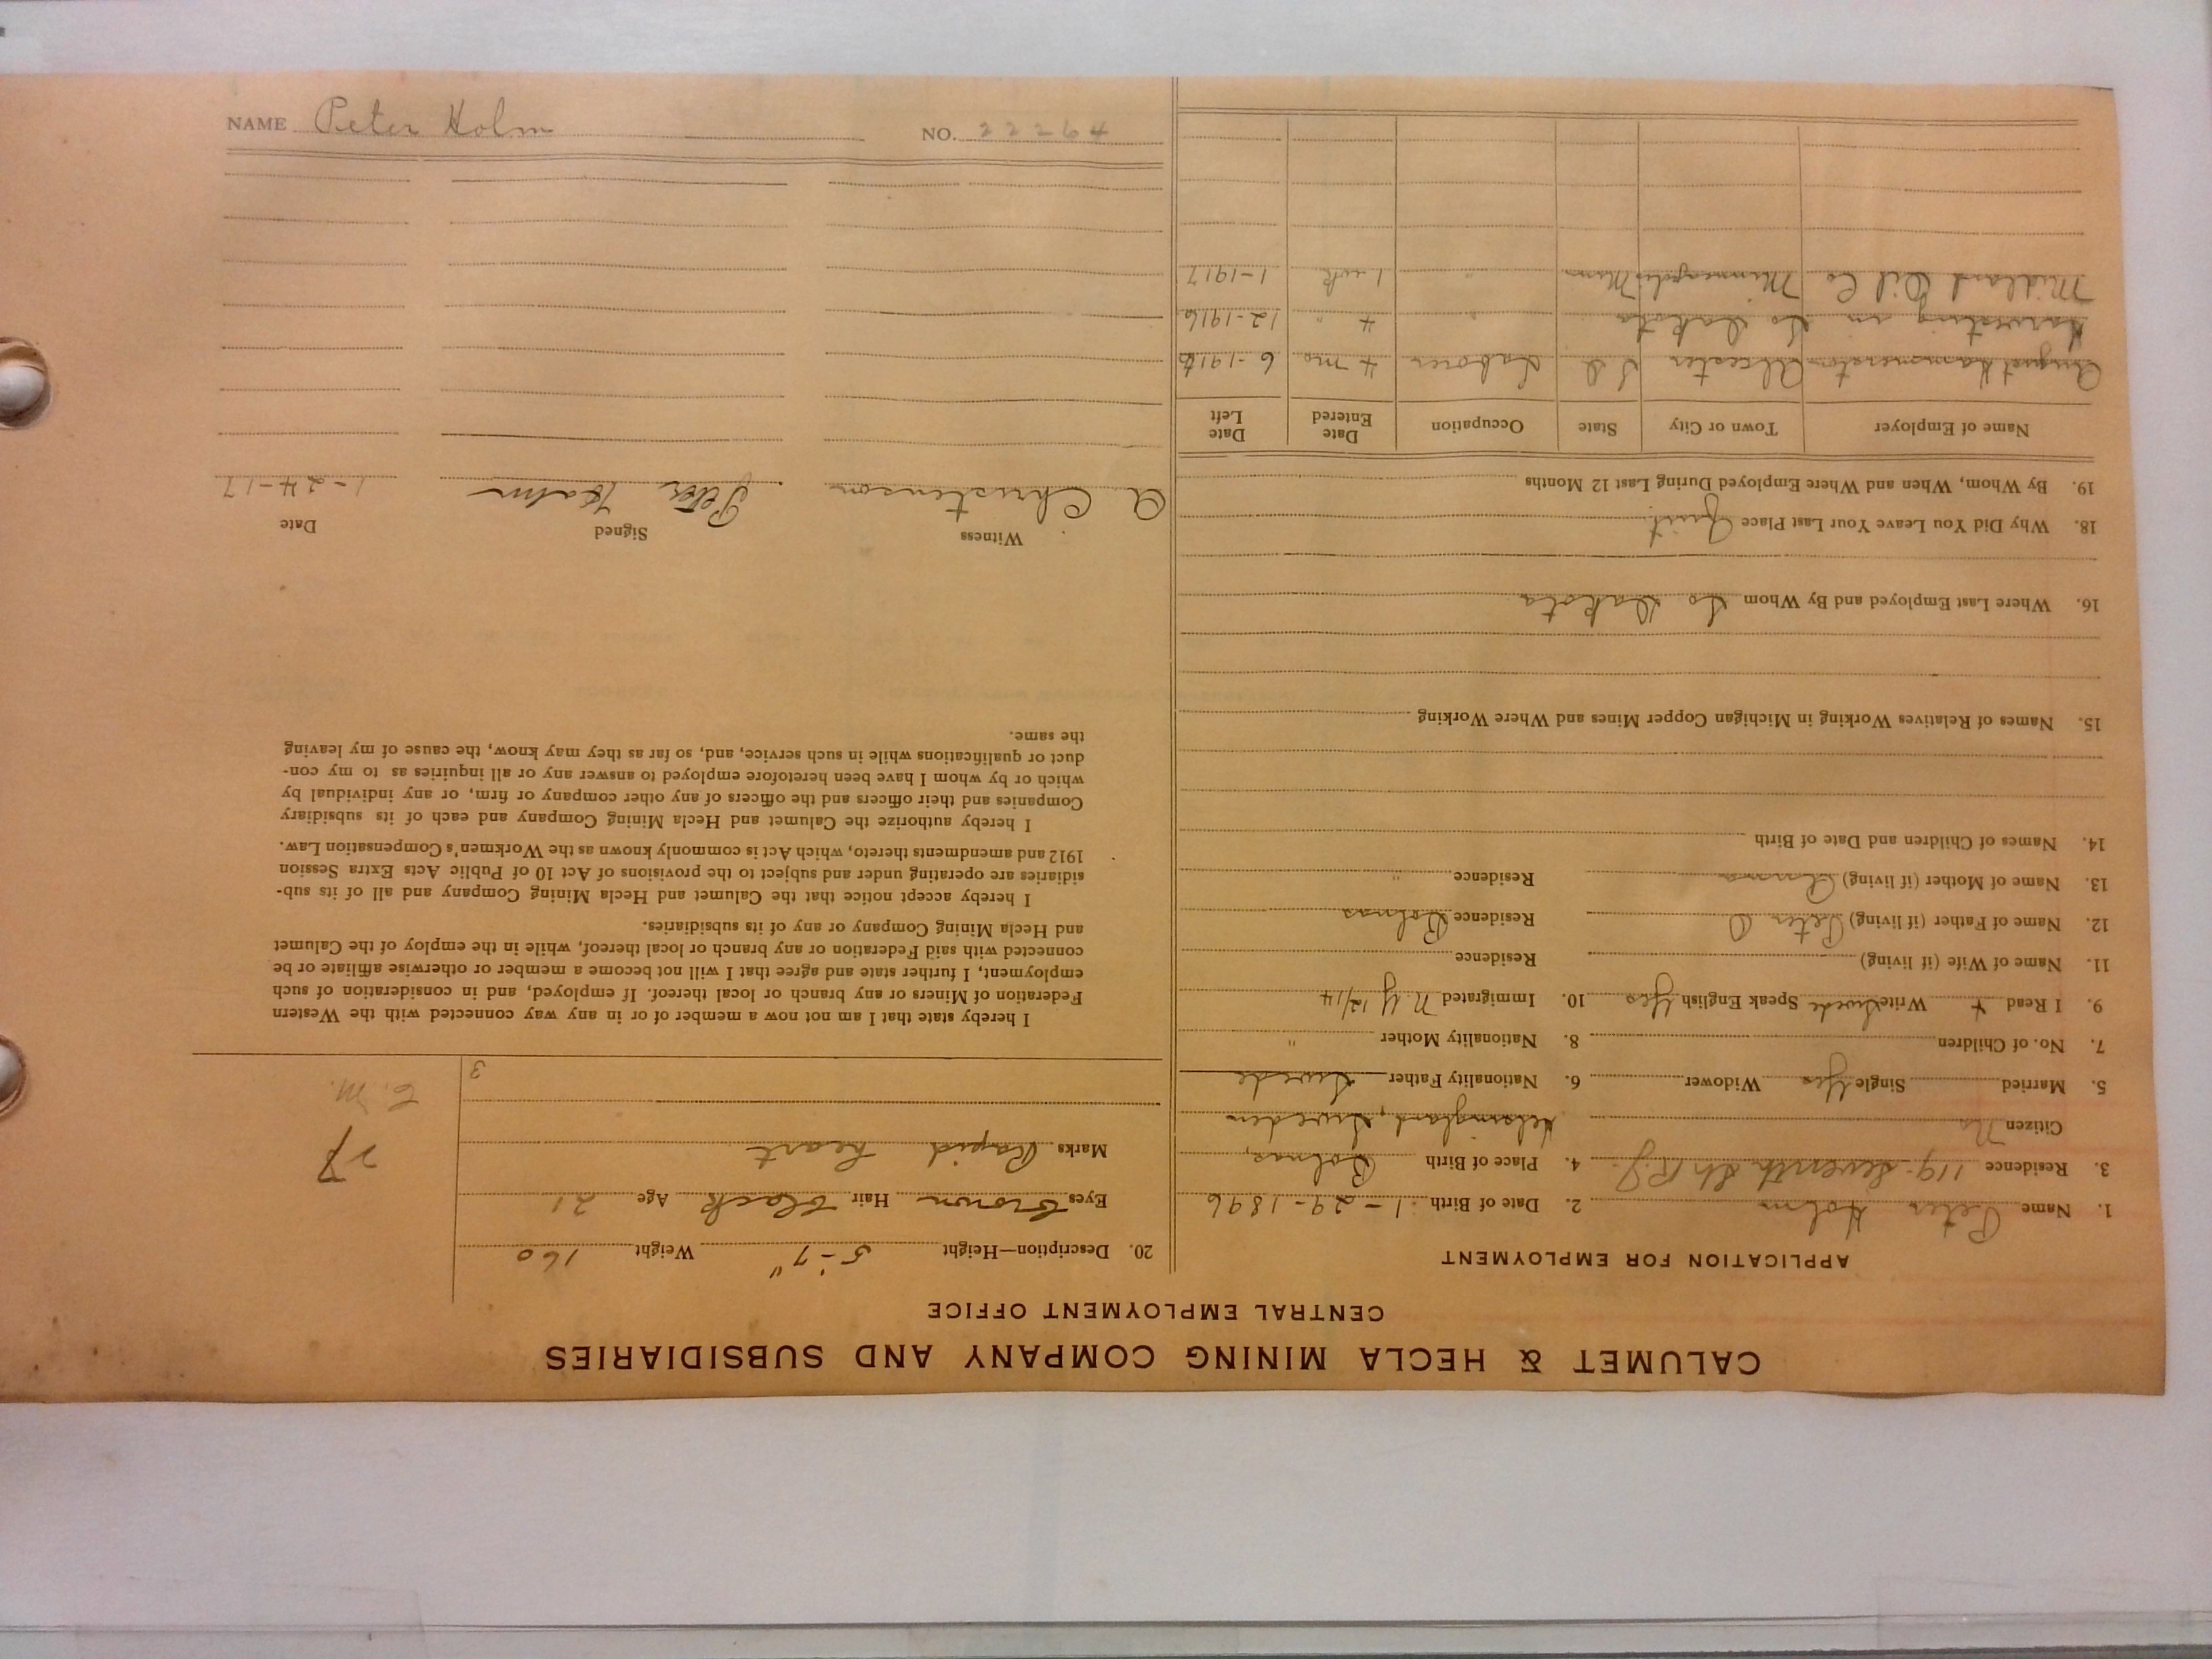 CALUMET & HECLA MINING COMPANY AND SUBSIDIARIES
CENTRAL EMPLOYMENT OFFICE
APPLICATION FOR EMPLOYMENT
1. Name Peter Holm 2. Date of Birth 1-29-1896
3. Residence 119 Seventh St R.J. 4. Place of Birth Bolnas,
Citizen No Helsingland, Sweden
5. Married Single Yes Widower 6. Nationality Father Swede
7. No. of Children 8. Nationality Mother "
9. I Read + Write Swede Speak English Yes 10. Immigrated N.Y. 12/14
11. Name of Wife (if living) Residence
12. Name of Father (if living) Peter O Residence Bolnas
13. Name of Mother (if living) Residence "
14. Names of Children and Date of Birth
15. Names of Relatives Working in Michigan Copper Mines and Where Working
16. Where Last Employed and By Whom So Dakota
18. Why Did You Leave Your Last Place Quit
19. By Whom, When and Where Employed During Last 12 Months
Name of Employer Town or City State Occupation Date Entered Date Left
August Alcester S D Laborer 4 mo 6-1916
Harvesting in So Dakota " 4 " 12-1916
Midland Oil Co Minneapolis Minn " 1 wk 1-1917
20. Description—Height 5'-7" Weight 160
Eyes Brown Hair Black Age 21
Marks Rapid heart
3
27
C. M.
I hereby state that I am not now a member of or in any way connected with the Western
Federation of Miners or any branch or local thereof. If employed, and in consideration of such
employment, I further state and agree that I will not become a member or otherwise affiliate or be
connected with said Federation or any branch or local thereof, while in the employ of the Calumet
and Hecla Mining Company or any of its subsidiaries.
I hereby accept notice that the Calumet and Hecla Mining Company and all of its sub-
sidiaries are operating under and subject to the provisions of Act 10 of Public Acts Extra Session
1912 and amendments thereto, which Act is commonly known as the Workmen's Compensation Law.
I hereby authorize the Calumet and Hecla Mining Company and each of its subsidiary
Companies and their officers and the officers of any other company or firm, or any individual by
which or by whom I have been heretofore employed to answer any or all inquiries as to my con-
duct or qualifications while in such service, and, so far as they may know, the cause of my leaving
the same.
Witness Signed Date
A Christenson Peter Holm 1-24-17
NAME Peter Holm NO. 22264